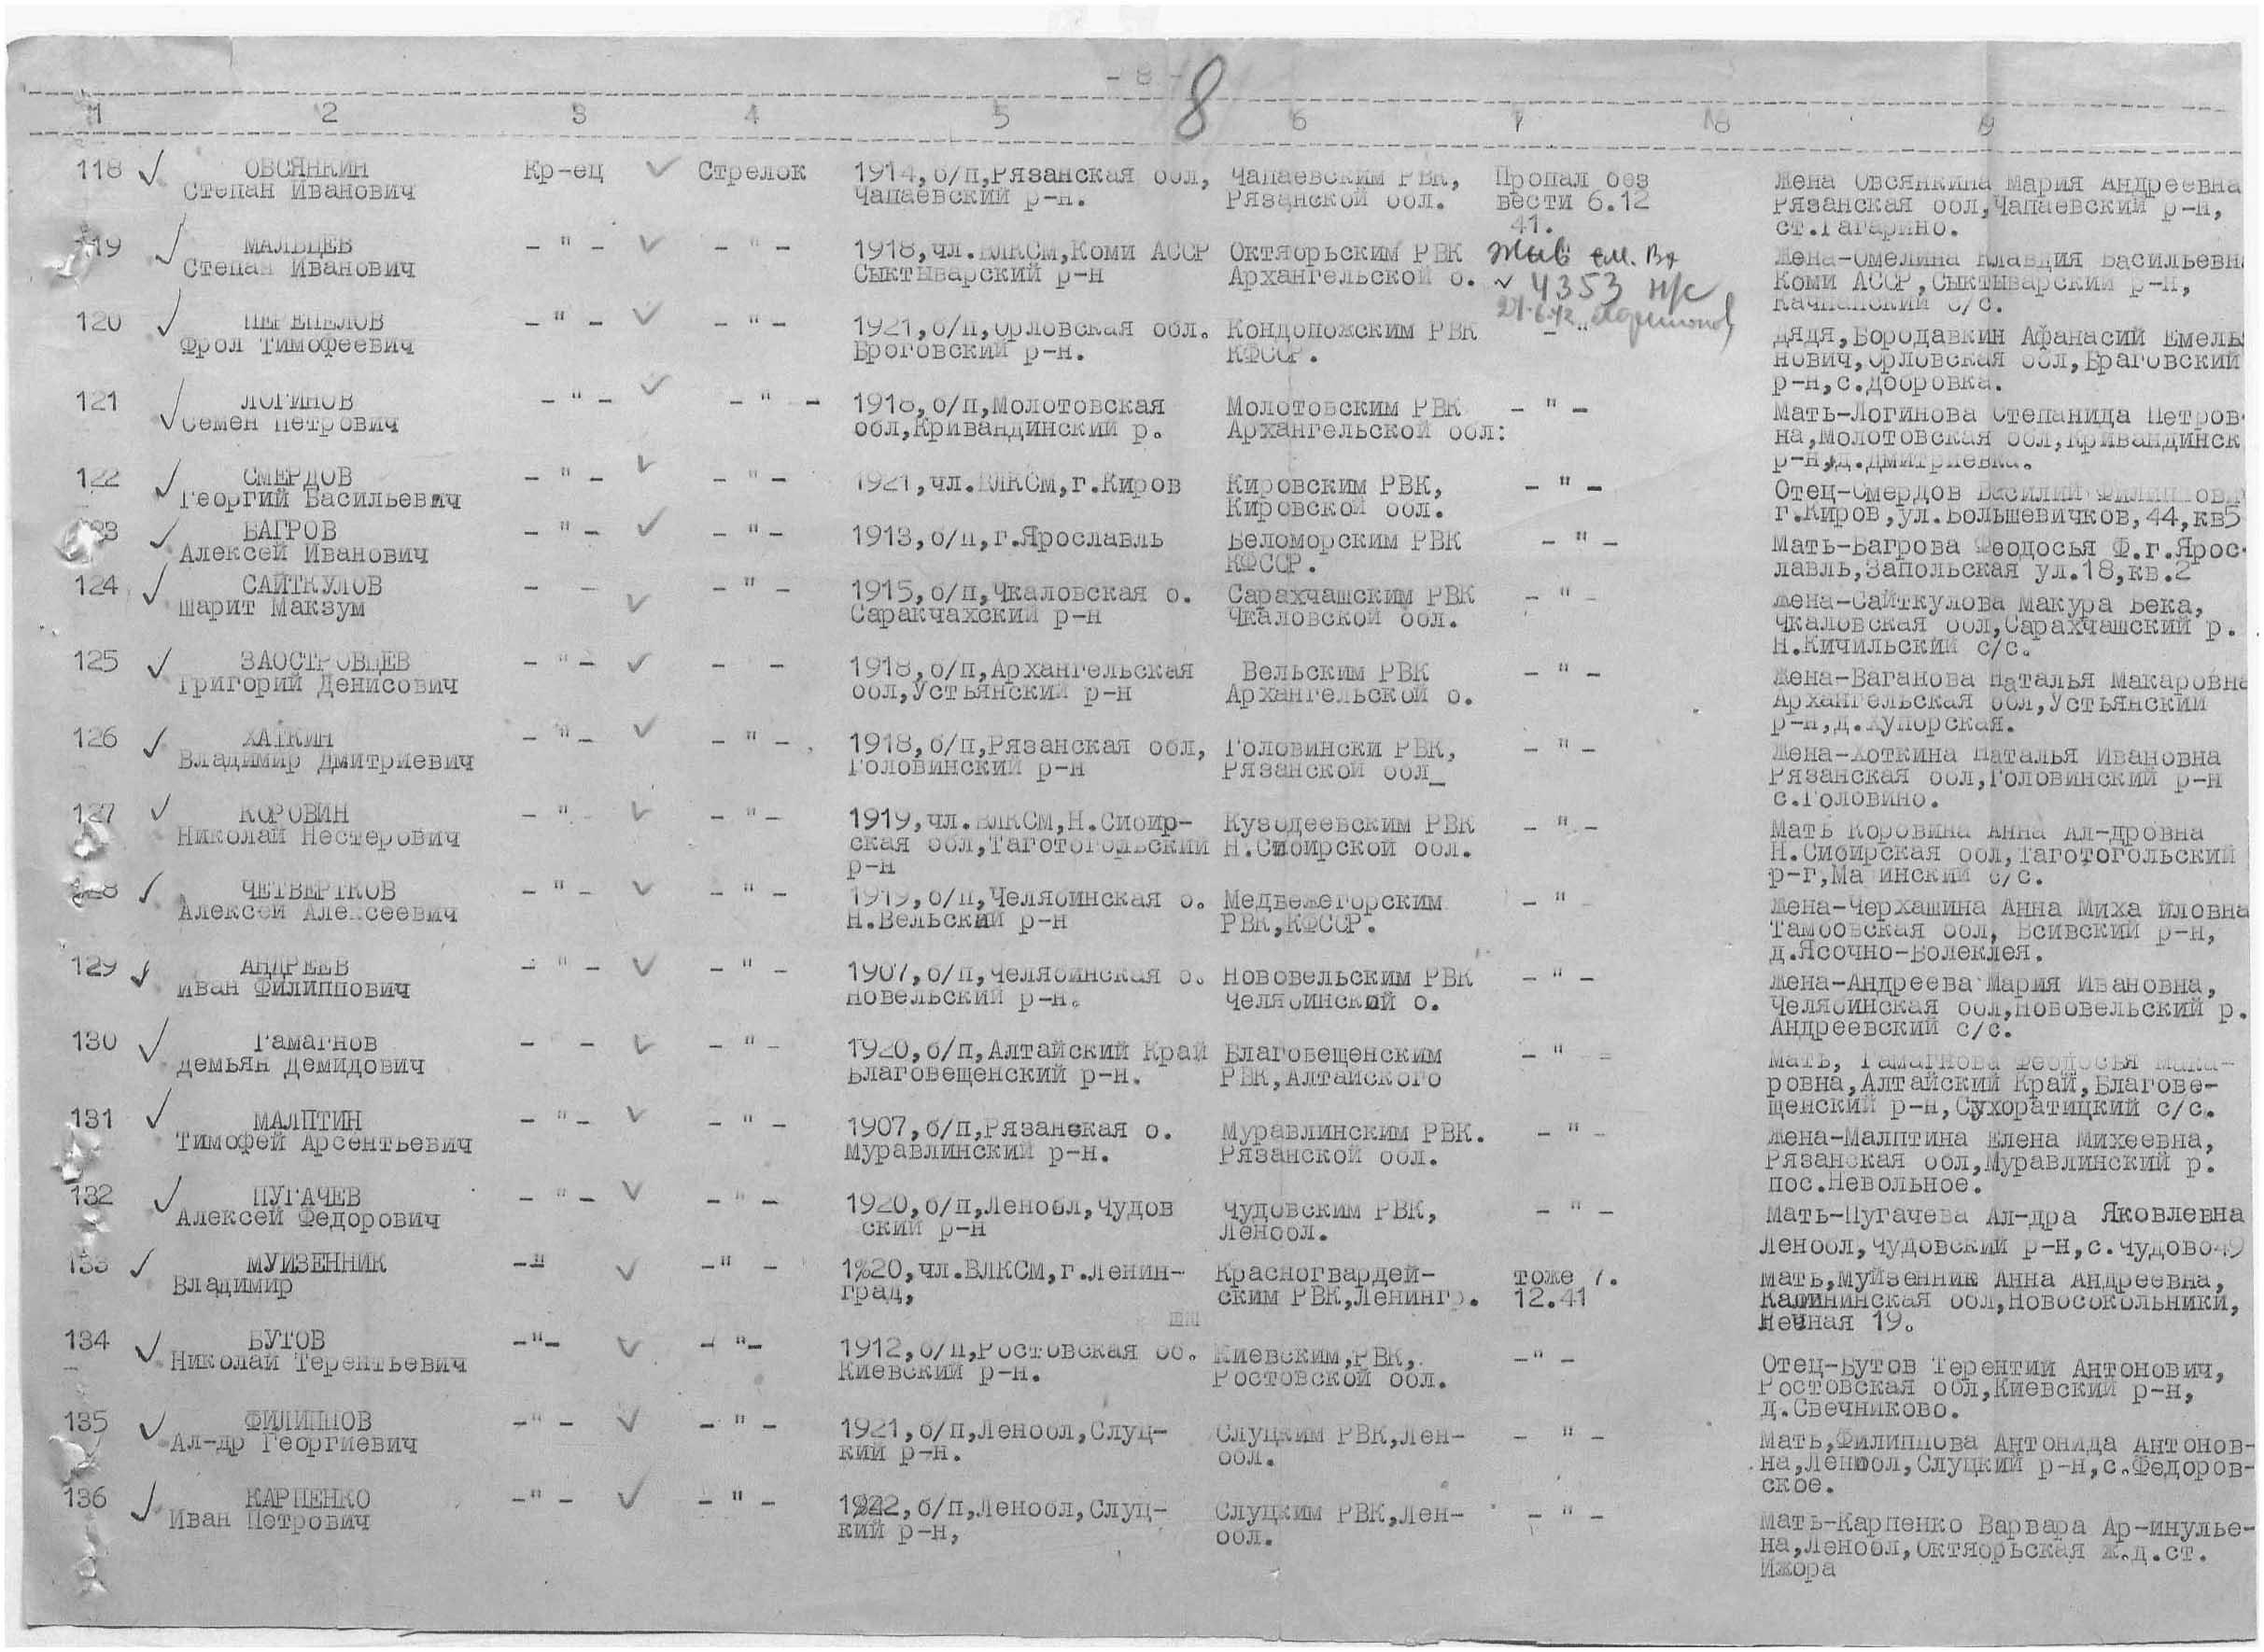 - 8 -
8
1 2 3 4 5 6 7 8 9
118 ОВСЯНКИН Кр-ец Стрелок 1914,б/п,Рязанская обл, Чапаевским РВК, Пропал без Жена Овсянкина Мария Андреевна
Степан Иванович Чапаевский р-н. Рязанской обл. вести 6.12 Рязанская обл,Чапаевский р-н,
41. ст.Гагарино.
119 МАЛЬЦЕВ - " - - " - 1918,чл.ВЛКСМ,Коми АССР Октябрьским РВК Жив см. Вх Жена-Омелина Клавдия Васильевн
Степан Иванович Сыктыварский р-н Архангельской о. 4353 н/с Коми АССР,Сыктыварский р-н,
Качпанский с/с.
120 ПЕРЕПЕЛОВ - " - - " - 1921,б/п,Орловская обл. Кондопожским РВК - " Дядя,Бородавкин Афанасий Емель
Фрол Тимофеевич Броговский р-н. КФССР. нович,Орловская обл,Браговский
р-н,с.Добровка.
121 ЛОГИНОВ - " - - " - 1918,б/п,Молотовская Молотовским РВК - " - Мать-Логинова Степанида Петров-
Семен Петрович обл,Кривандинский р. Архангельской обл: на,Молотовская обл,Кривандинск
р-н,д.Дмитриевка.
122 СМЕРДОВ - " - - " - 1921,чл.ВЛКСМ,г.Киров Кировским РВК, - " - Отец-Смердов Василий
Георгий Васильевич Кировской обл. г.Киров,ул.Большевичков,44,кв5
123 БАГРОВ - " - - " - 1913,б/п,г.Ярославль Беломорским РВК - " - Мать-Багрова Феодосья Ф.г.Ярос-
Алексей Иванович КФССР. лавль,Запольская ул.18,кв.2
124 САЙТКУЛОВ - - - " - 1915,б/п,Чкаловская о. Сарахчашским РВК - " - Жена-Сайткулова Макура Бека,
Шарит Макзум Саракчахский р-н Чкаловской обл. Чкаловская обл,Сарахчашский р.
Н.Кичильский с/с.
125 ЗАОСТРОВЦЕВ - " - - - 1918,б/п,Архангельская Вельским РВК - " - Жена-Ваганова Наталья Макаровна
Григорий Денисович обл,Устьянский р-н Архангельской о. Архангельская обл,Устьянский
р-н,д.Хупорская.
126 ХАТКИН - " - - " - 1918,б/п,Рязанская обл, Головински РВК, - " - Жена-Хоткина Наталья Ивановна
Владимир Дмитриевич Головинский р-н Рязанской обл_ Рязанская обл,Головинский р-н
с.Головино.
127 КОРОВИН - " - " - 1919,чл.ВЛКСМ,Н.Сибир- Кузодеевским РВК - " - Мать Коровина Анна Ал-дровна
Николай Нестерович ская обл,Таготогольский Н.Сибирской обл. Н.Сибирская обл,Таготогольский
р-н р-г,Ма инский с/с.
128 ЧЕТВЕРТКОВ - " - - " - 1919,б/п,Челябинская о. Медвежегорским - " - Жена-Черхашина Анна Миха йловна
Алексей Алексеевич Н.Вельский р-н РВК,КФССР. Тамбовская обл, Всивский р-н,
д.Ясочно-Болеклея.
129 АНДРЕЕВ - " - - " - 1907,б/п,Челябинская о. Нововельским РВК - " - Жена-Андреева Мария Ивановна,
Иван Филиппович Новельский р-н. Челябинской о. Челябинская обл,Нововельский р.
Андреевский с/с.
130 Тамагнов - - - " - 1920,б/п,Алтайский Край Благовещенским - " - Мать, Тамагнова Феодосья Мака-
Демьян Демидович Благовещенский р-н. РВК,Алтайского ровна,Алтайский Край,Благове-
щенский р-н,Сухоратицкий с/с.
131 МАЛПТИН - " - - " - 1907,б/п,Рязанская о. Муравлинским РВК. - " - Жена-Малптина Елена Михеевна,
Тимофей Арсентьевич Муравлинский р-н. Рязанской обл. Рязанская обл,Муравлинский р.
пос.Невольное.
132 ПУГАЧЕВ - " - - " - 1920,б/п,Ленобл,Чудов Чудовским РВК, - " - Мать-Пугачева Ал-дра Яковлевна
Алексей Федорович ский р-н Ленобл. Ленобл,Чудовский р-н,с.Чудово-49
133 МУЙЗЕННИК -"- -" - 1920,чл.ВЛКСМ,г.Ленин- Красногвардей- тоже 7. Мать,Муйзенник Анна Андреевна,
Владимир град, ским РВК,Ленингр. 12.41 Калининская обл,Новосокольники,
19.
134 БУТОВ -"- - "- 1912,б/п,Ростовская об. Киевским,РВК, -" - Отец-Бутов Терентий Антонович,
Николай Терентьевич Киевский р-н. Ростовской обл. Ростовская обл,Киевский р-н,
д.Свечниково.
135 ФИЛИППОВ -" - - " - 1921,б/п,Ленобл,Слуц- Слуцким РВК,Лен- - " - Мать,Филиппова Антонида Антонов-
Ал-др Георгиевич кий р-н. обл. на,Ленобл,Слуцкий р-н,с.Федоров-
ское.
136 КАРПЕНКО -" - - " - 1922,б/п,Ленобл,Слуц- Слуцким РВК,Лен- - " - Мать-Карпенко Варвара Ар-инулье-
Иван Петрович кий р-н, обл. на,Ленобл,Октябрьская ж.д.ст.
Ижора